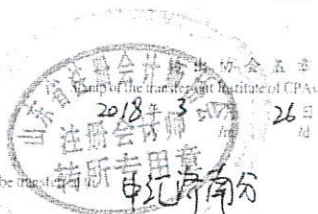 转出协会盖章
Stamp of the transfer-out Institute of CPAs
2018年 3 26日
山东省注册会计师
注册会计师
转所专用章
be transferred to
中汇济南分